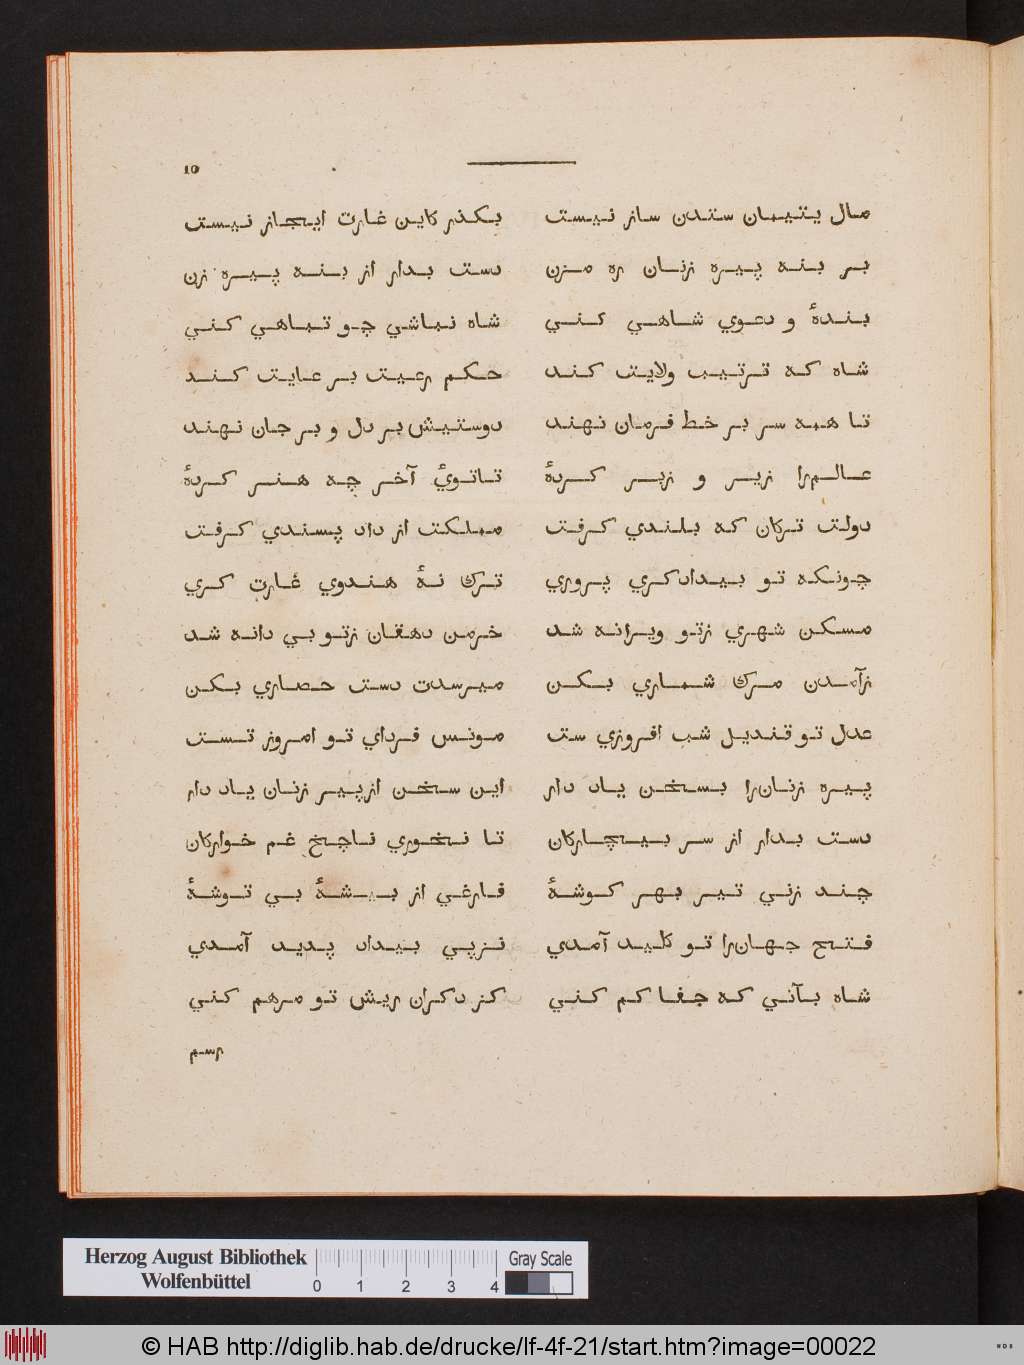 10
مال یتیمان ستدن ساز نیست بکذر کاین غارت ایجاز نیست
بر بنه پیره زنان ره مزن دست بدار از بنه پیره زن
بندهٔ و دعوي شاهي کني شاه نباشي چو تباهي کني
شاه که ترتیب ولایت کند حکم رعیت بر عایت کند
تا همه سر بر خط فرمان نهند دوستیش بر دل و بر جان نهند
عالمرا زیر و زبر کردهٔ تاتوئ آخر چه هنر کردهٔ
دولت ترکان که بلندي کرفت مملکت از داد پسندي کرفت
چونکه تو بیدادکري پروري ترك نهٔ هندوي غارت کري
مسکن شهري زتو ویرانه شد خرمن دهقان زتو بي دانه شد
زآمدن مرك شماري بکن میرسدت دست حصاري بکن
عدل تو قندیل شب افروزي ست مونس فرداي تو امروز تست
پیره زنانرا بسخن یاد دار این سخن ازپیر زنان یاد دار
دست بدار از سر بیچارکان تا نخوري ناچخ غم خوارکان
چند زني تیر بهر کوشهٔ فارغي از شهٔ بي توشهٔ
فتح جهانرا تو کلید آمدي نزپي بیداد پدید آمدي
شاه بآني که جفا کم کني کز دکران ریش تو مرهم کني
رسم
Herzog August Bibliothek
Wolfenbüttel
0 1 2 3 4
Gray Scale
© HAB http://diglib.hab.de/drucke/lf-4f-21/start.htm?image=00022